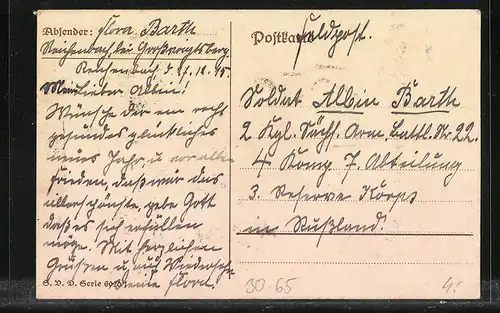 Absender: Flora Barth
Reichenbach bei Großvoigtsberg
Reichenbach d. 27. 12. 15.
Mein lieber Albin!
Wünsche dir ein recht
gesundes glückliches
neues Jahr, u. vor allem
Frieden, daß wär das
allerschönste, gebe Gott
daß es sich erfüllen
möge. Mit herzlichen
Grüßen u. auf Wiedersehn
deine Flora.
S. V. D. Serie
Postkarte
Feldpost.
Soldat Albin Barth
2 Kgl. Sächs. Arm. Battl. Nr. 22.
4 Komp. 7. Abteilung
3. Reserve Korps
in Rußland!
30.65
4.-